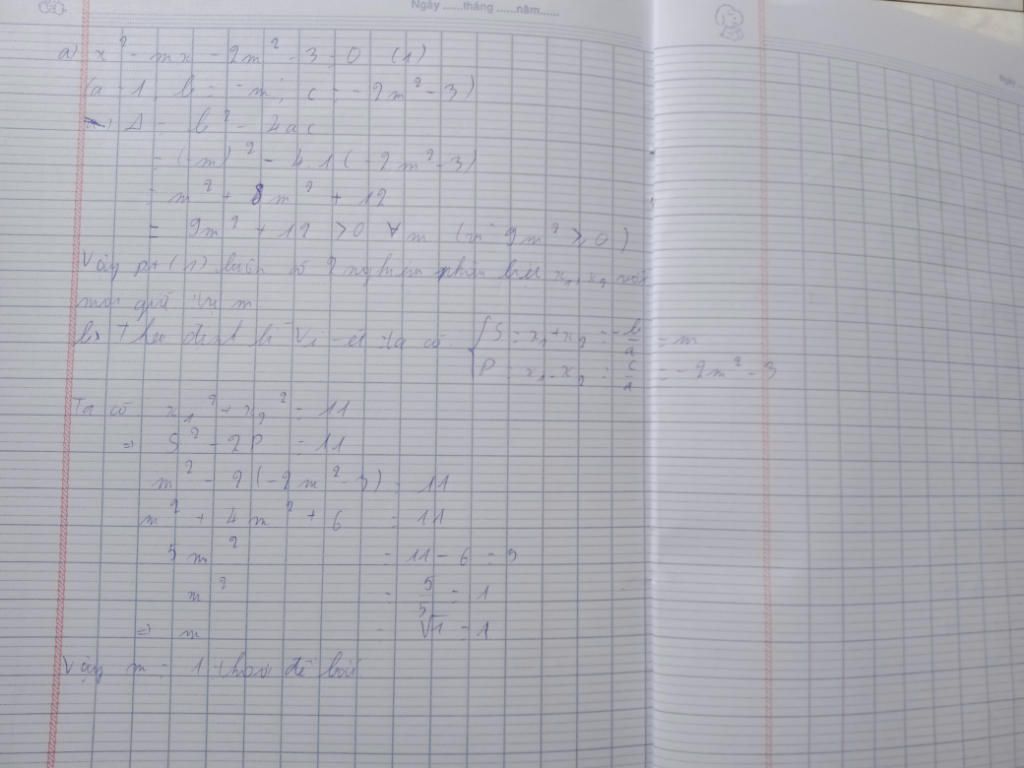 Ngày ......tháng ......năm......
a) x² - mx - 2m² - 3 = 0 (1)
(a = 1, b = -m; c = -2m² - 3)
Δ = b² - 4ac
= (-m)² - 4.1(-2m² - 3)
= m² + 8m² + 12
= 9m² + 12 > 0 ∀m (vì 9m² ≥ 0)
Vậy pt (1) luôn có 2 nghiệm phân biệt x₁, x₂ với
mọi giá trị m
b) Theo định lí Vi-et ta có { S = x₁ + x₂ = -b/a = m
P = x₁.x₂ = c/a = -2m² - 3
Ta có x₁² + x₂² = 11
⇒ S² - 2P = 11
m² - 2(-2m² - 3) = 11
m² + 4m² + 6 = 11
5m² = 11 - 6 = 5
m² = 5/5 = 1
⇒ m = √1 = 1
Vậy m = 1 thoả đề bài